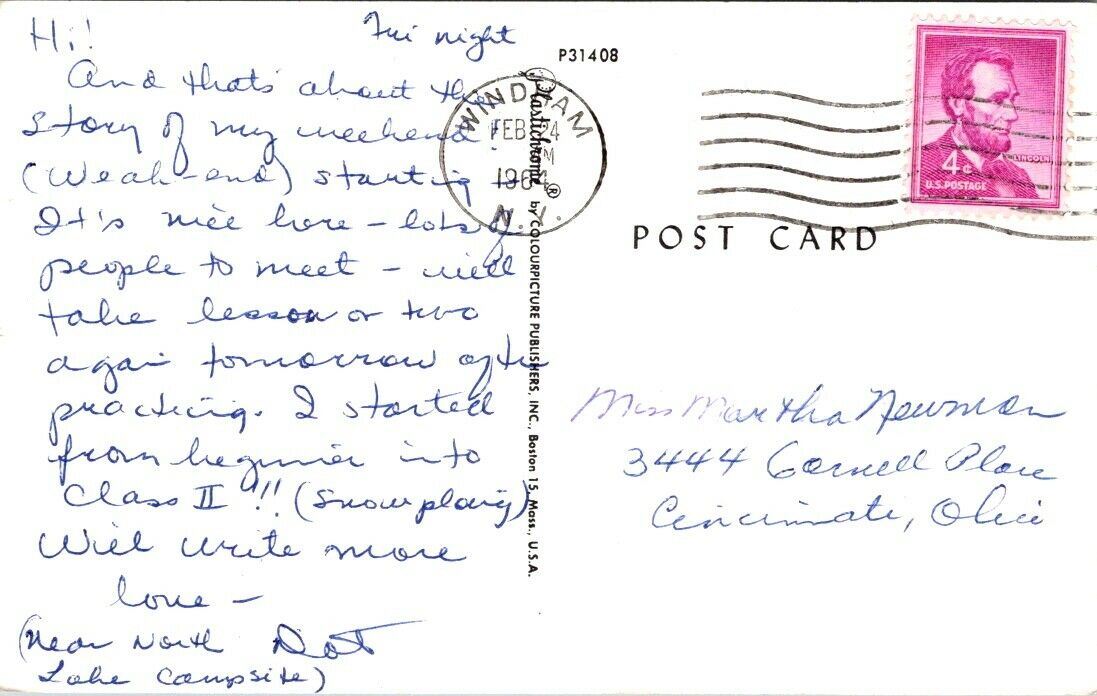 Hi! Fri night
And thats about the
story of my weekend!
(Weak-end) starting -
It's nice here - lots of
people to meet - will
take lesson or two
again tomorrow after
practicing. I started
from beginner into
Class II !!! (Snowplowing)
Will write more
love -
Dot
(Near North
Lake Campsite)
P31408
Plastichrome ® by COLOURPICTURE PUBLISHERS, INC., Boston 15, Mass., U.S.A.
WINDHAM
FEB 24
M
1964
N.Y.
4¢
LINCOLN
U.S. POSTAGE
POST CARD
Miss Martha Newman
3444 Cornell Place
Cincinnati, Ohio